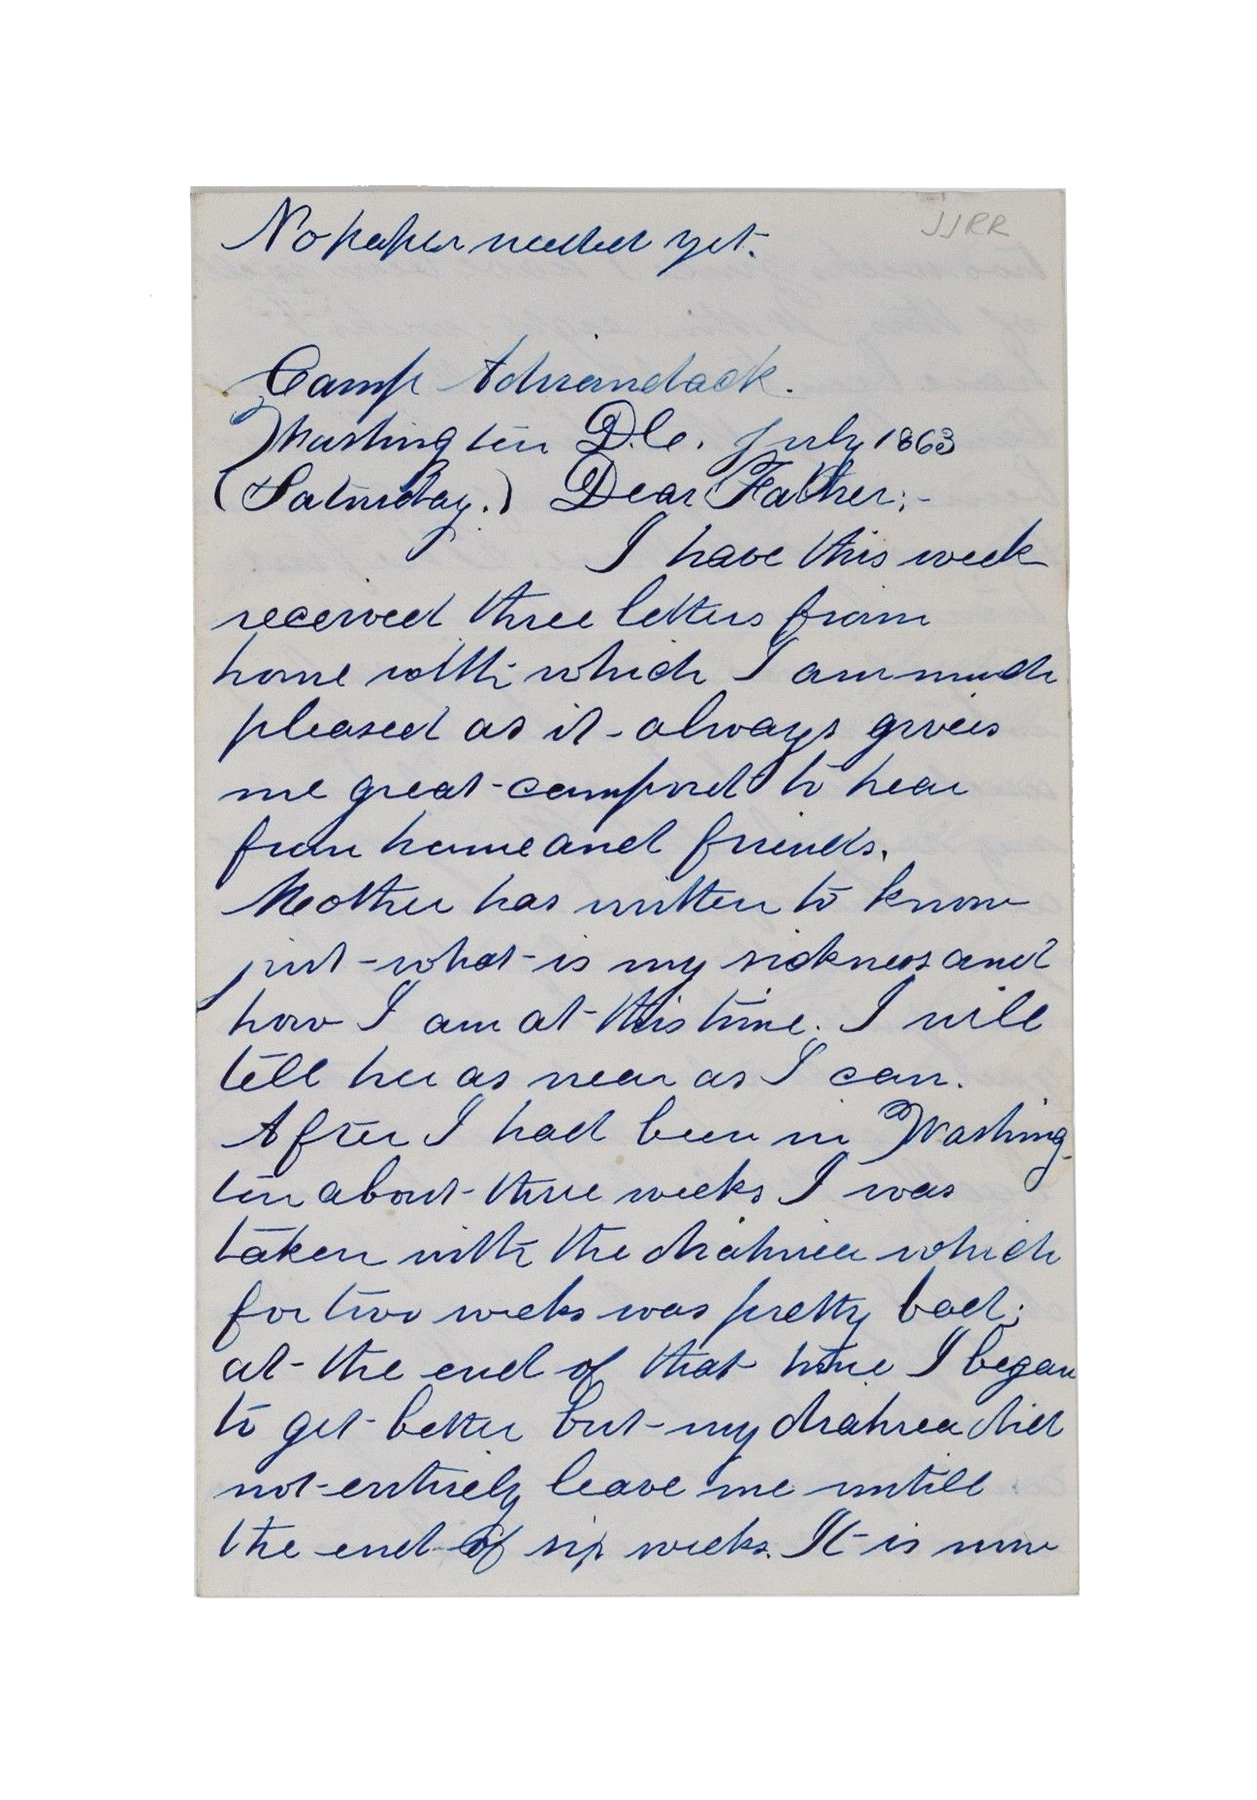 No paper needed yet.
JJRR
Camp Adirandack.
Washington D.C. July 1863
(Saturday.) Dear Father;-
I have this week
received three letters from
home with which I am much
pleased as it always gives
me great comfort to hear
from home and friends.
Mother has written to know
just what is my sickness and
how I am at this time. I will
tell her as near as I can.
After I had been in Washing-
ton about three weeks I was
taken with the diahrea which
for two weeks was pretty bad;
at the end of that time I began
to get better but my diahrea did
not entirely leave me untill
the end of six weeks. It is now